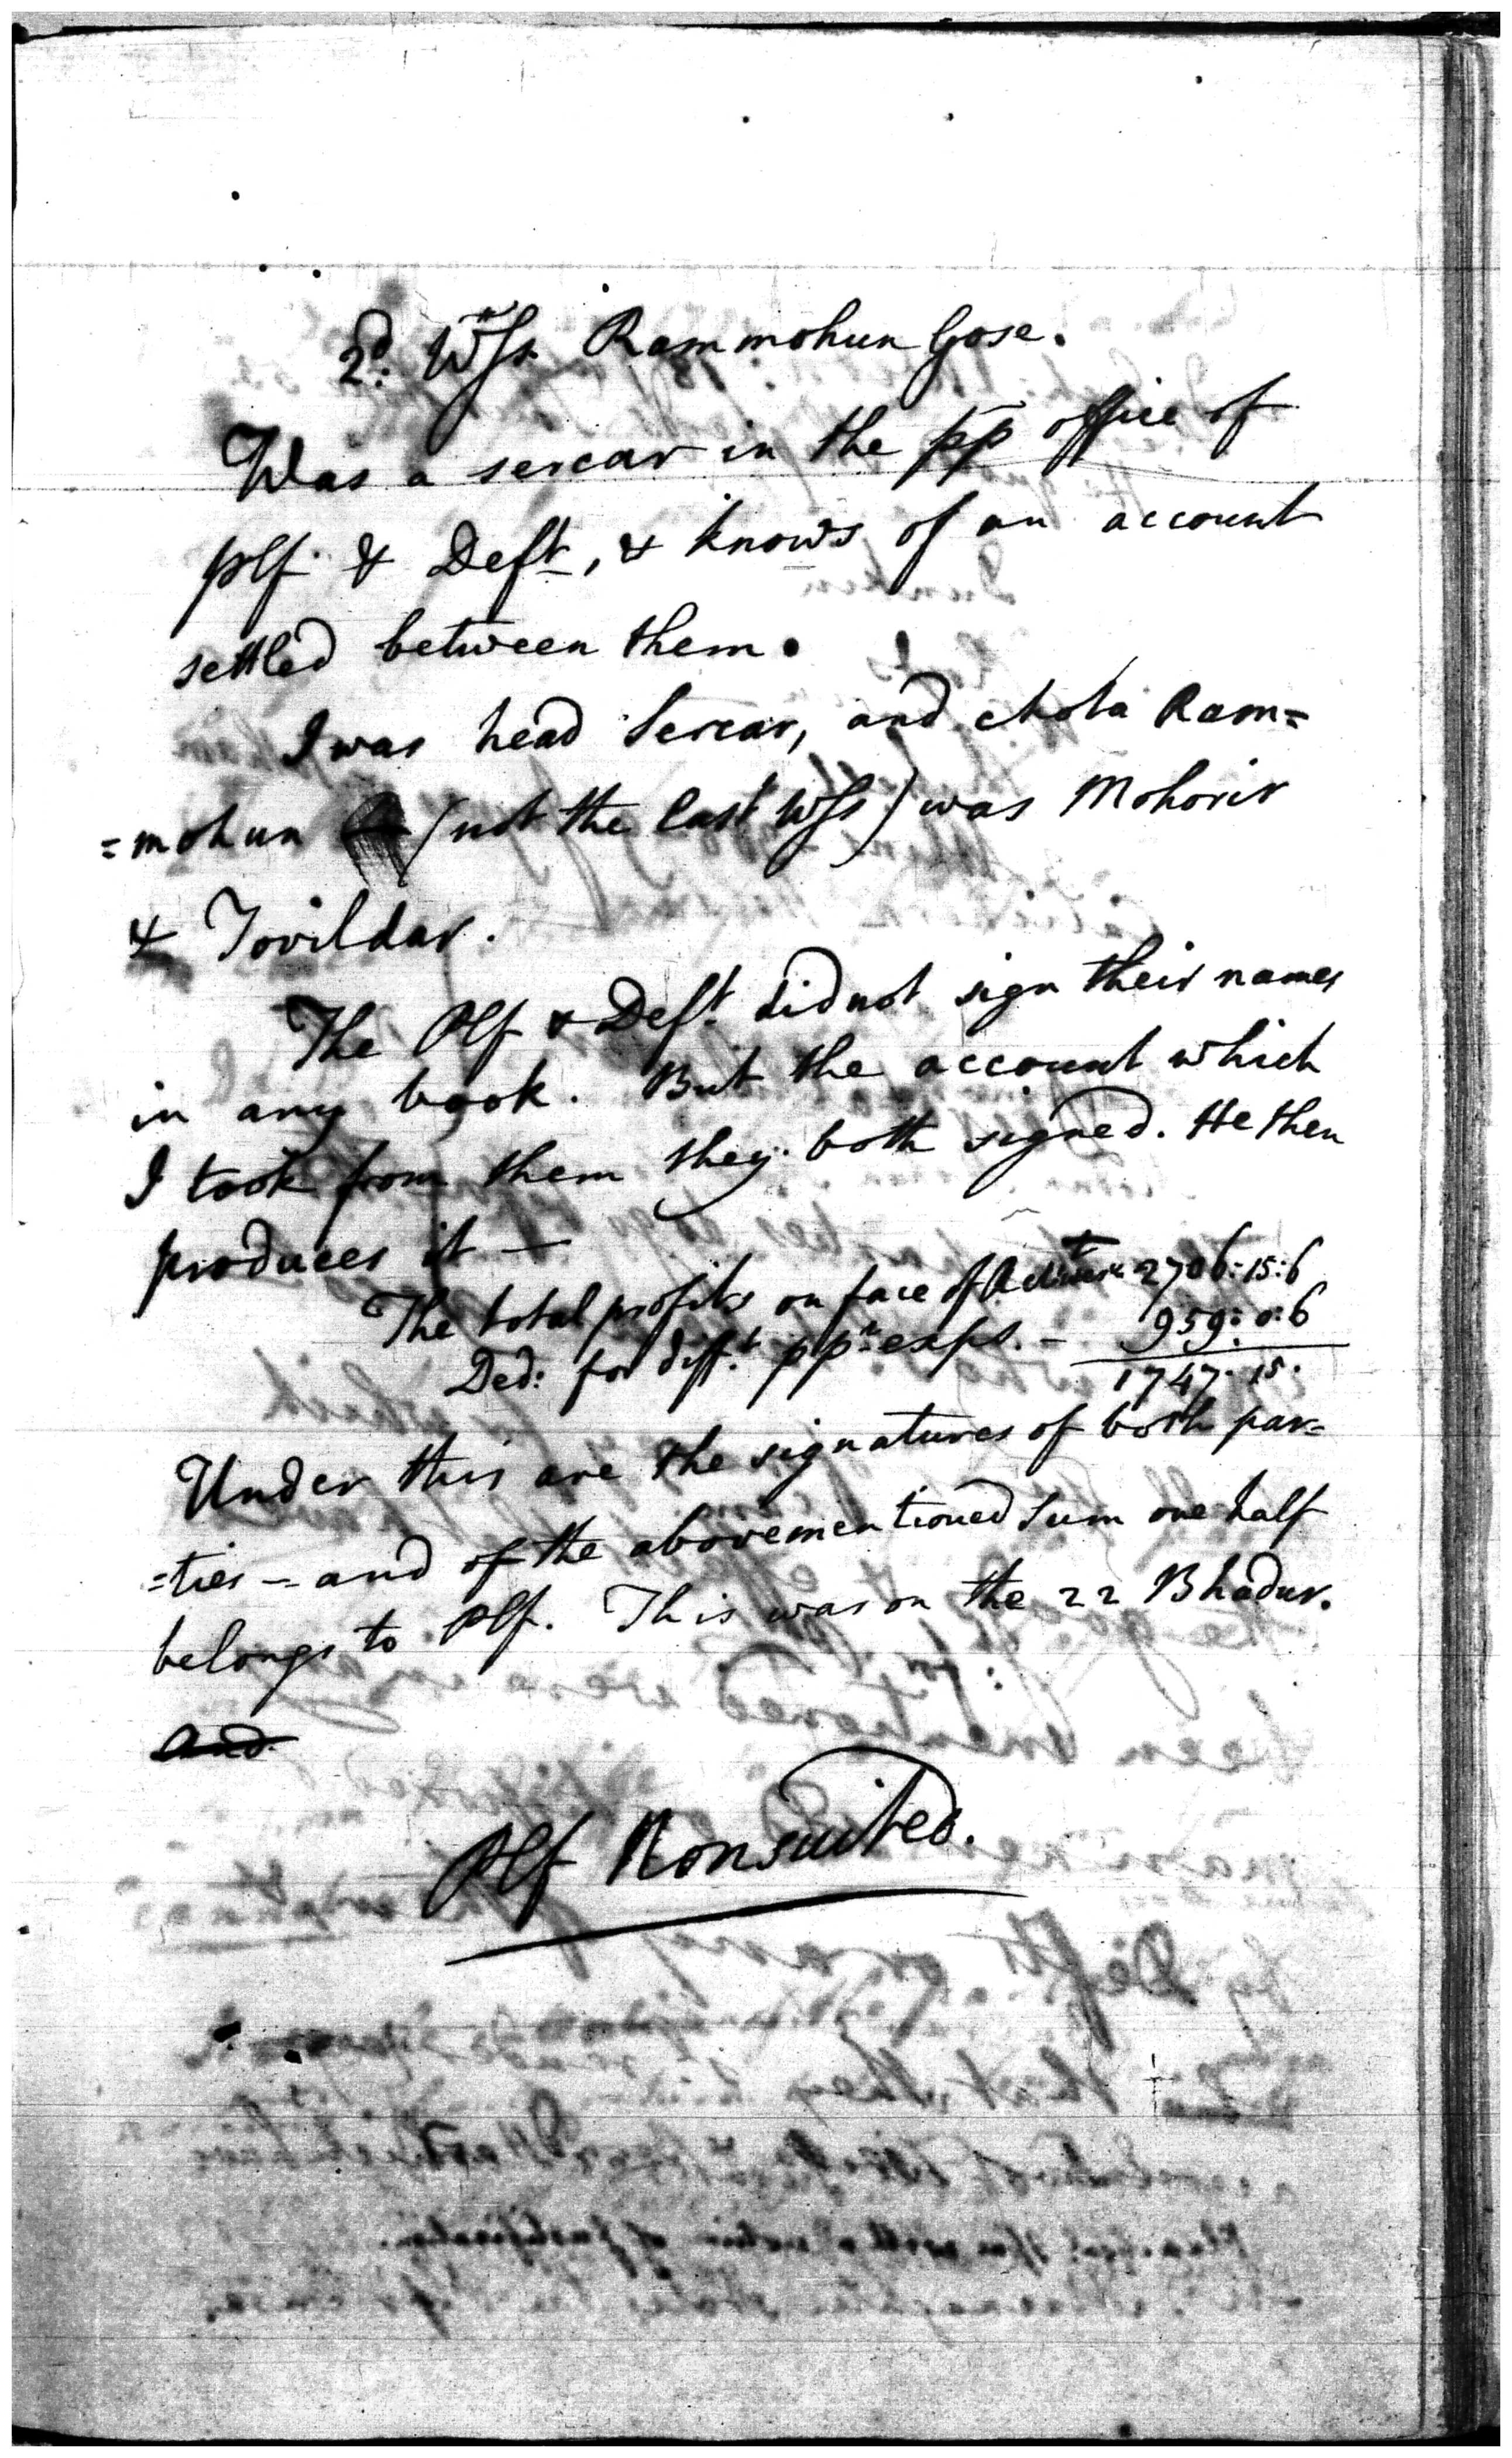 2d: Wss. Rammohun Gose.
Was a sercar in the pp office of
plf. & Deft, & knows of an account
settled between them.
I was head Sercar, and chota Ram=
=mohun (not the last Wss) was Mohorir
& Tovildar.
The Plf & Deft. did not sign their names
in any book. But the account which
I took from them they both signed. He then
produces it —
The total profits on face of 2706:15:6
Ded: for diff.t pp.r exps. — 959:0:6
1747.15.
Under this are the signatures of both par=
=ties — and of the abovementioned Sum one half
belongs to Plf. This was on the 22 Bhadur.
and
Plf Nonsuited.